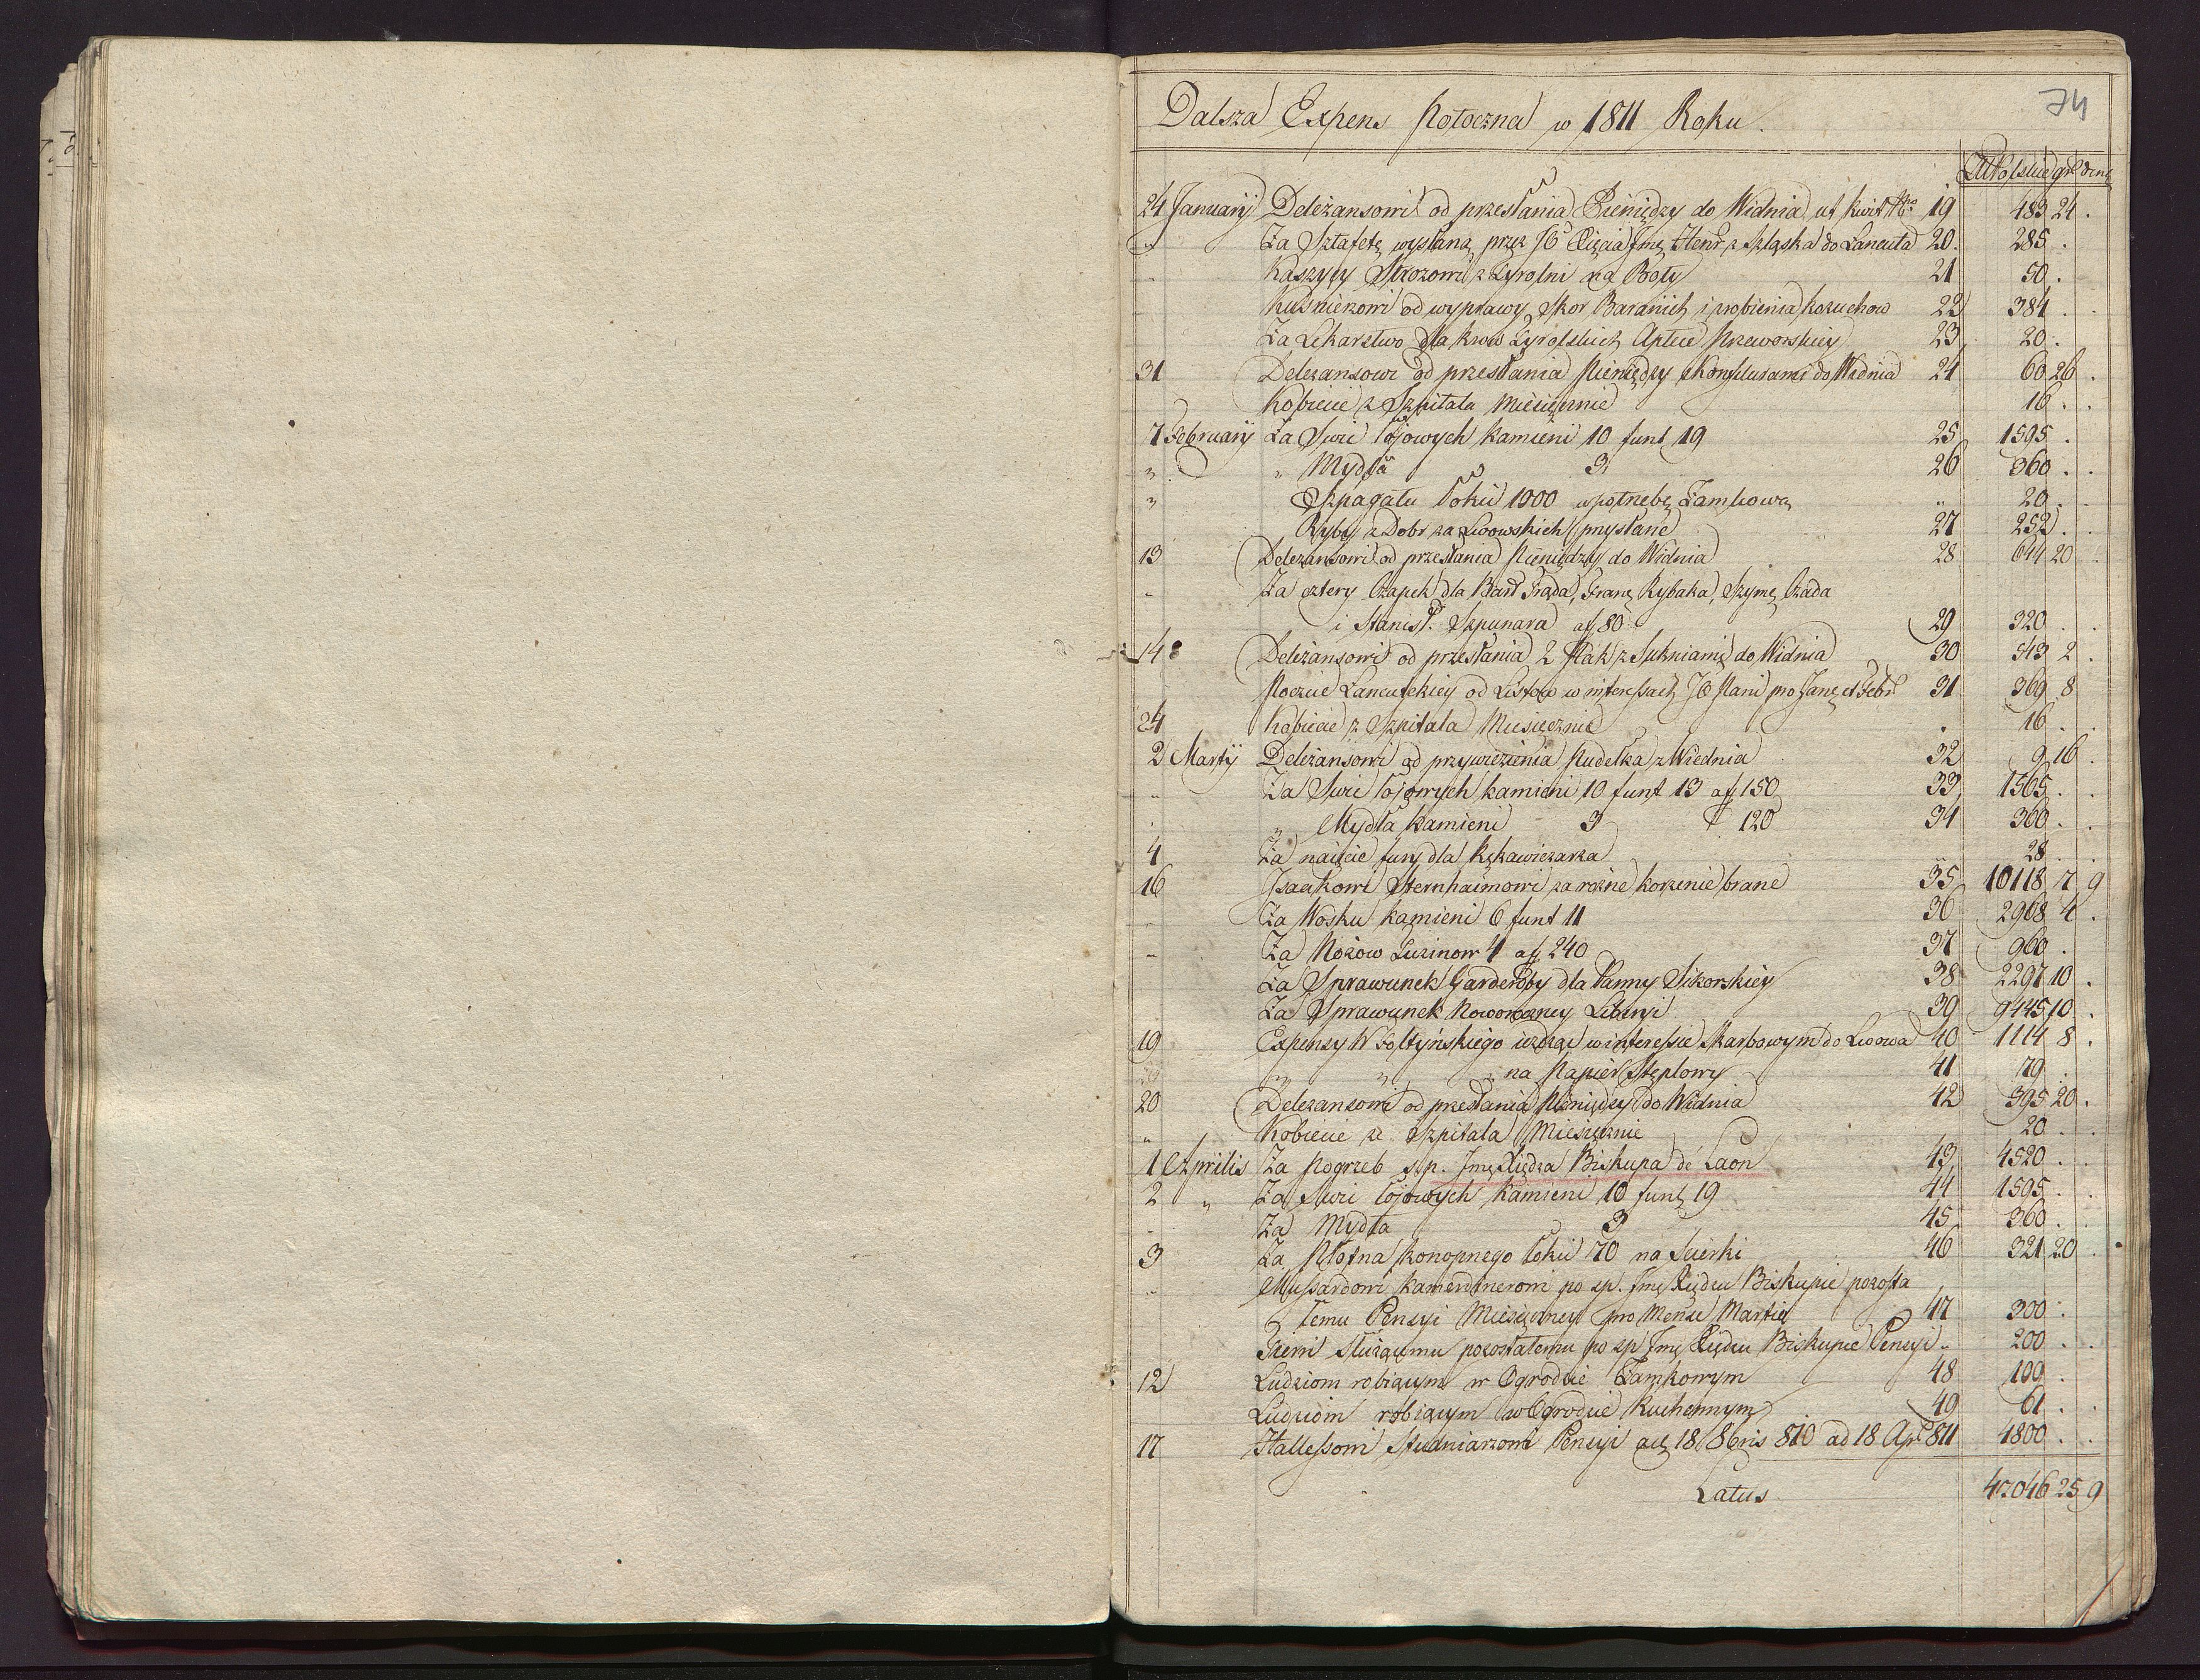 74
Dalsza Expens Potoczna w 1811 Roku.
ZłPolskie gr den
24 Januarÿ Deleżansowi od przesłania Pieniędzy do Widnia ut kwit No 19 483 24 .
" Za Sztafetę wysłaną przez JO Xięcia Jmę Henr. z Szląska do Łancuta 20. 285 .
Kaszycy Strozowi z Tyrolni na Boty 21 50 .
Kuśnierzowi od wyprawy Skor Baranich i zrobienia kożuchow 22 384 . .
Za Lekarstwo dla krow Tyrolskich Aptece Przeworskiey 23 20 .
31 Deleżansowi od przesłania Pieniędzy i Konfiturami do Widnia 24 60 26 .
Kobiecie z Szpitala Miesięcznie 16 . .
7 Februarÿ Za Swic łojowych kamieni 10 funt 19 25 1595 .
" " Mydła 3 26 360 . .
" Szpagatu łokci 1000 na potrzebę Zamkową " 20 .
Ryby z Dobr za Lwowskich przysłane 27 252 . .
13 Deleżansowi od przesłania Pieniędzy do Widnia 28 644 20
" Za cztery Czapek dla Bart Frąda, Franc Rybaka, Szymę Czada
i Stanisł. Szpunara af 80 29 320 . .
14 Deleżansowi od przesłania 2 Pak z Sukniami do Widnia 30 543 2 .
Poczcie Łancutskiey od Listow w interessach JO Pani pro Jan et Febr 31 369 8
24 Kobiecie z Szpitala Miesięcznie . 16 . .
2 Martÿ Deleżansowi od przywiezienia Pudełka z Wiednia 32 9 16 .
" Za Swic łojowych kamieni 10 funt 13 af 150 33 1565 . .
" Mydła kamieni 3 120 34 360 . .
4 Za naięcie fury dla Rękawiczarza " 28 .
16 Isaakowi Sternhaimowi za rożne korzenie brane 35 10118 7 9
" Za Wosku kamieni 6 funt 11 36 2968 4 .
" Za Nożow Tuzinow 4 af 240 37 960 .
Za Sprawunek Garderoby dla Panny Sikorskiey 38 2297 10 .
Za Sprawunek Noworoczney Liberyi 39 9445 10 .
19 Expensy W Foltyńskiego iezdząc w interessie Skarbowym do Lwowa 40 1114 8 .
" " " na Papier Stęplowy 41 79 .
20 Deleżansowi od przesłania Pieniędzy do Widnia 42 595 20 .
" Kobiecie ze Szpitala Miesięcznie 20 . .
1 Aprilis Za Pogrzeb s.p. Jmę Xiędza Biskupa de Laon 43 4520 . .
2 " Za Swic łojowych Kamieni 10 funt 19 44 1595 . .
" Za Mydła 3 45 360 . .
3 Za Płotna konopnego łokci 70 na Scierki 46 321 20 .
" Mussardowi kamerdinerowi po sp. Jmę Xiędzu Biskupie pozosta
łemu Pensyi Miesięczney pro Mense Martio 47 300 .
służącemu pozostałemu po sp Jmę Xiędzu Biskupie Pensyi " 200 . .
12 Ludziom robiącym w Ogrodzie Zamkowym 48 109 .
Ludziom robiącym w Ogrodzie Kuchennym 49 61 . .
17 Hallessowi Studniarzowi Pensyi a 18 8bris 810 ad 18 Apr 811 4800 . .
Latus 47046 25 9